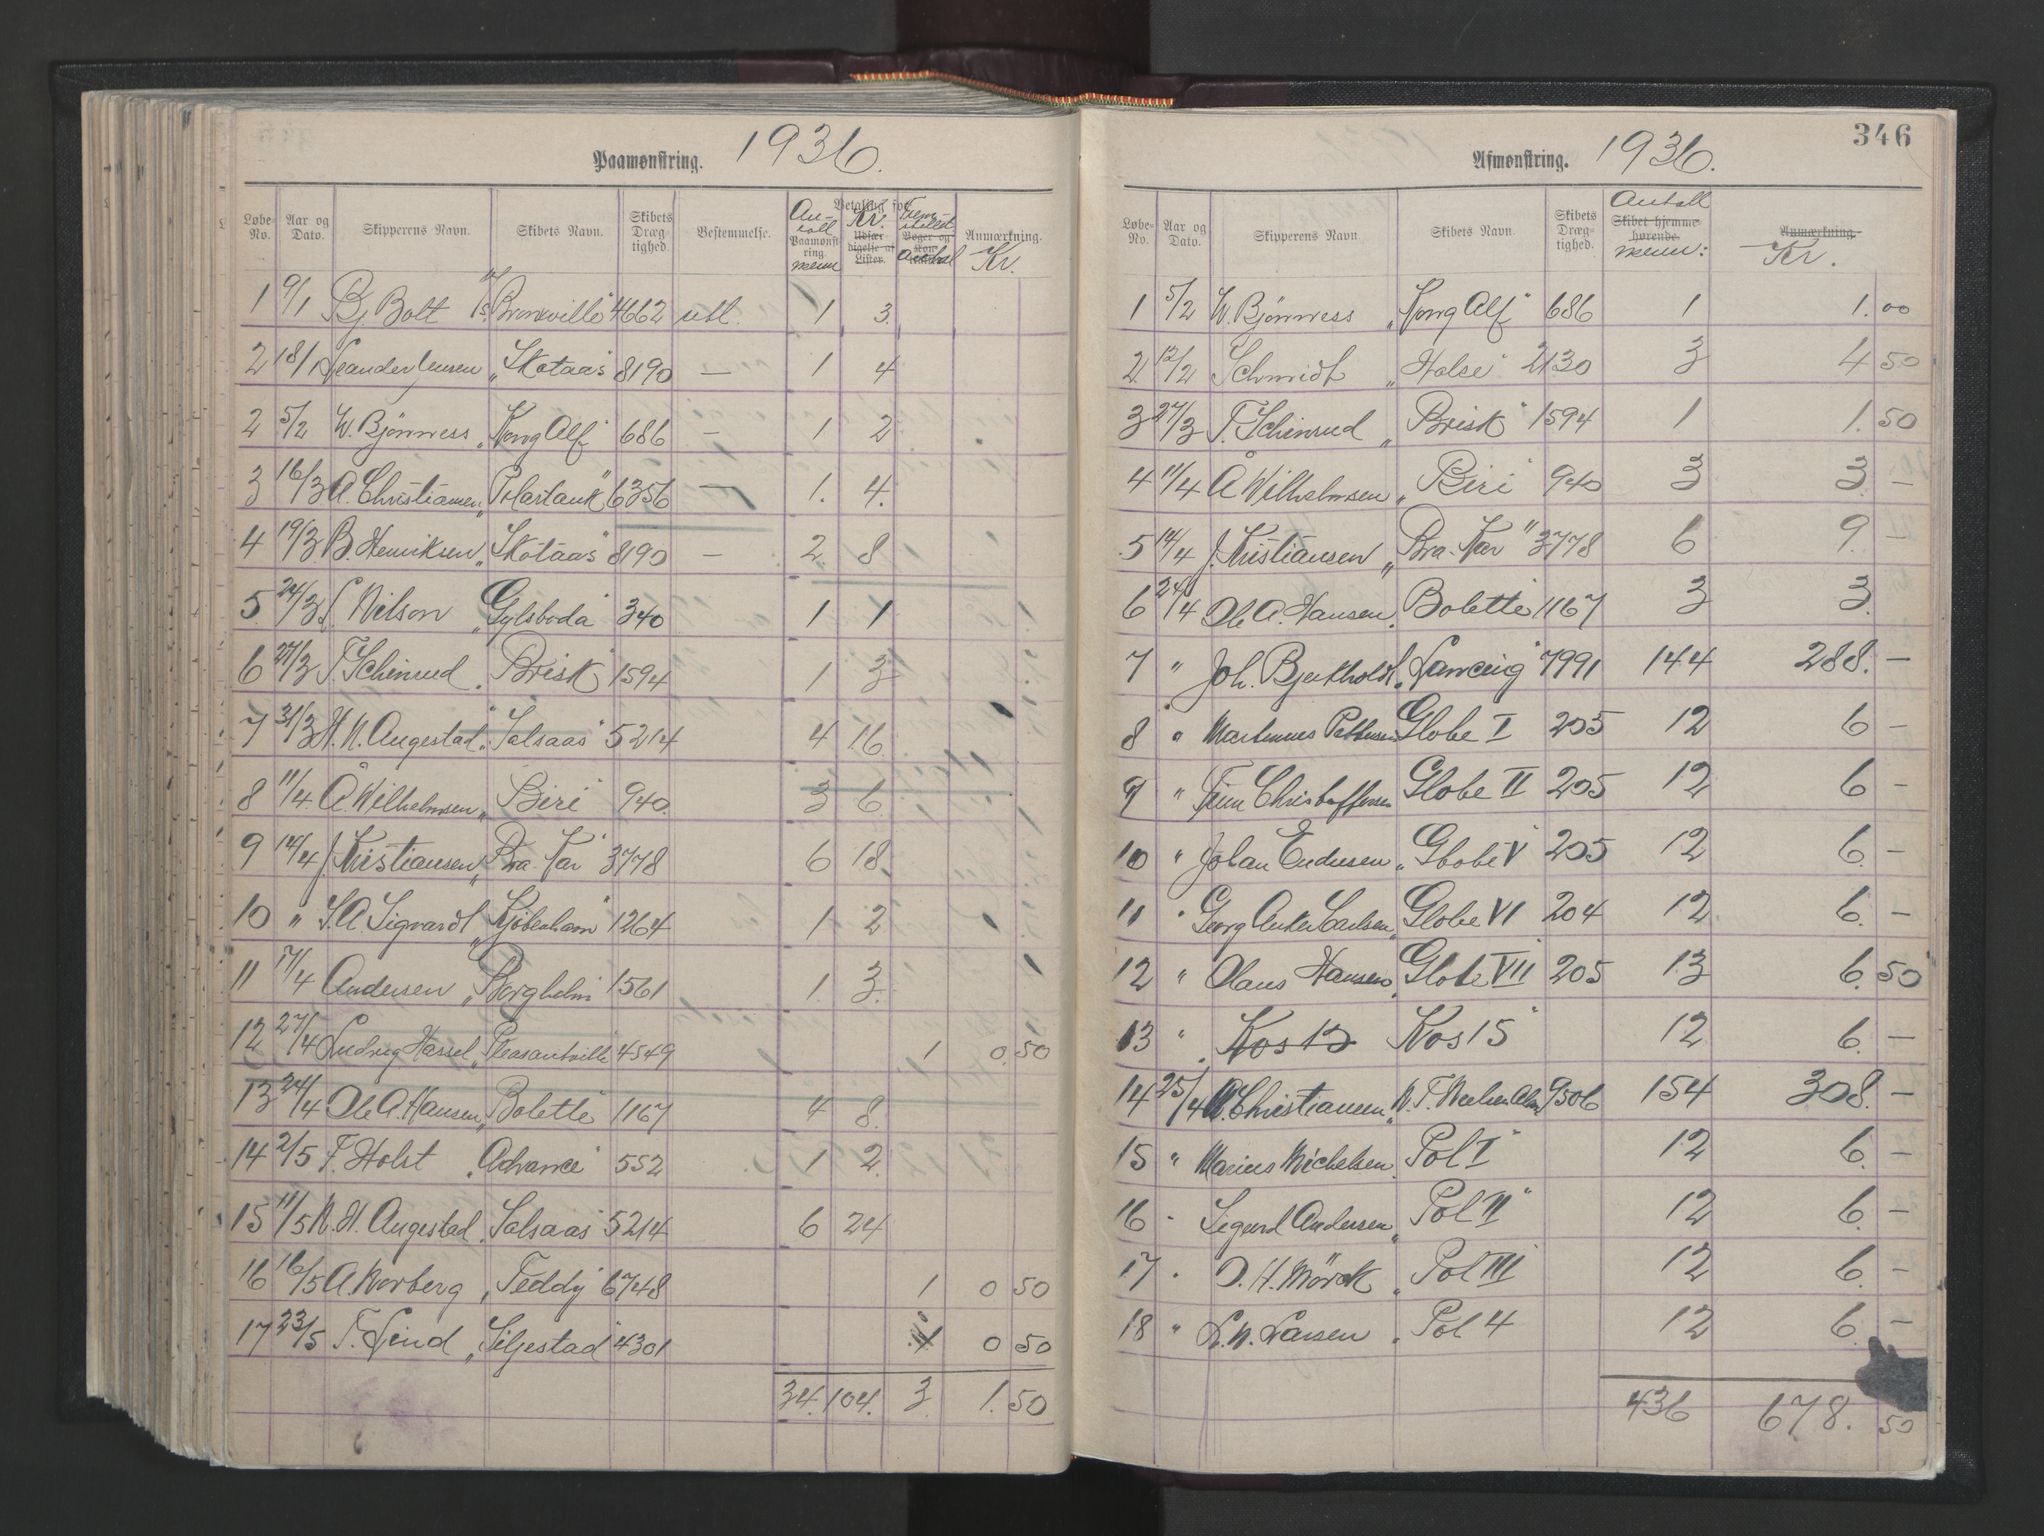 Paamønstring. 1936.
Løbe-No. Aar og Dato. Skipperens Navn. Skibets Navn. Skibets Dræg-tighed. Bestemmelse. Betaling for An-tall Paamønst-ring menn Kr. Udfær-digelse af Lister. Frem-stillet Bøger og Antal Anmærkning. Kr.
1 9/1 Bj. Bolt "Bronxville" 4662 utl. 1 3.
2 18/1 Leander Jensen "Skotaas" 8190 — 1 4
2 5/2 W. Bjønness "Kong Alf" 686 — 1 2
3 16/3 A. Christiansen "Polartank" 6356 — 1. 4.
4 19/3 B. Henriksen "Skotaas" 8190 — 2. 8
5. 24/3 L. Nilson "Gylsboda" 340 1 1
6 27/3 T. Schinrud "Brisk" 1594 1 3
7 31/3 H. N. Augestad "Salsaas" 5214 4 16.
8 11/4 Å. Wilhelmsen "Biri" 940. 3 6.
9 14/4 J. Kristiansen "Bra-Kar" 3778 6 18.
10 " S. A. Sigvardt "Kjøbenhavn" 1264 1 2
11 17/4 Andersen "Borgholm" 1561 1. 3.
12 27/4 Ludvig Hassel "Pleasantville" 4549 1 0.50
13 24/4 Ole A. Hansen "Bolette" 1167 4 8.
14 2/5 F. Holst "Advance" 552 1 2.
15 11/5 N. H. Augestad "Salsaas" 5214 6 24
16 16/5 A. Norberg "Teddy" 6748 1 0 50
17 23/5 F. Lind "Siljestad" 4301 1 0 50
34. 104. 3 1. 50
346
Afmønstring. 1936.
Løbe-No. Aar og Dato. Skipperens Navn. Skibets Navn. Skibets Dræg-tighed. Antall Skibet hjemme-hørende. menn: Anmærkning. Kr.
1 5/2 W. Bjønness "Kong Alf" 686 1 1. 00
2. 12/2 Schmidt "Halse" 2130 3 4 50
3 27/3 T. Schinrud "Brisk" 1594 1 1. 50
4 11/4 Å Wilhelmsen "Biri" 940 3 3. —
5 14/4 J. Kristiansen "Bra-Kar" 3778 6 9. —
6 24/4 Ole A. Hansen "Bolette" 1167 3 3.
7 " Joh. Bjerkholdt "Lancing" 7991 144 288. —
8 " Martinus Pettersen Globe I 205 12 6 —
9 " Finn Christoffersen Globe II 205 12 6 —
10 " Johan Endresen "Globe V" 205 12 6. —
11 " Georg Anker Carlsen "Globe VI" 204 12 6. —
12 " Olaus Hansen "Globe VII" 205 13 6. 50
13 " Kos 12 Kos 15" 12 6. —
14 25/4 N. Christiansen "N. T. Nielsen Alonso" 9506 154 308. —
15 " Marius Michelsen "Pol I" 12 6. —
16 " Sigurd Andersen "Pol II" 12 6. —
17 " O. H. Mörck "Pol III" 12 6. —
18 " L. N. Larsen "Pol 4 12 6. —
436 678. 50